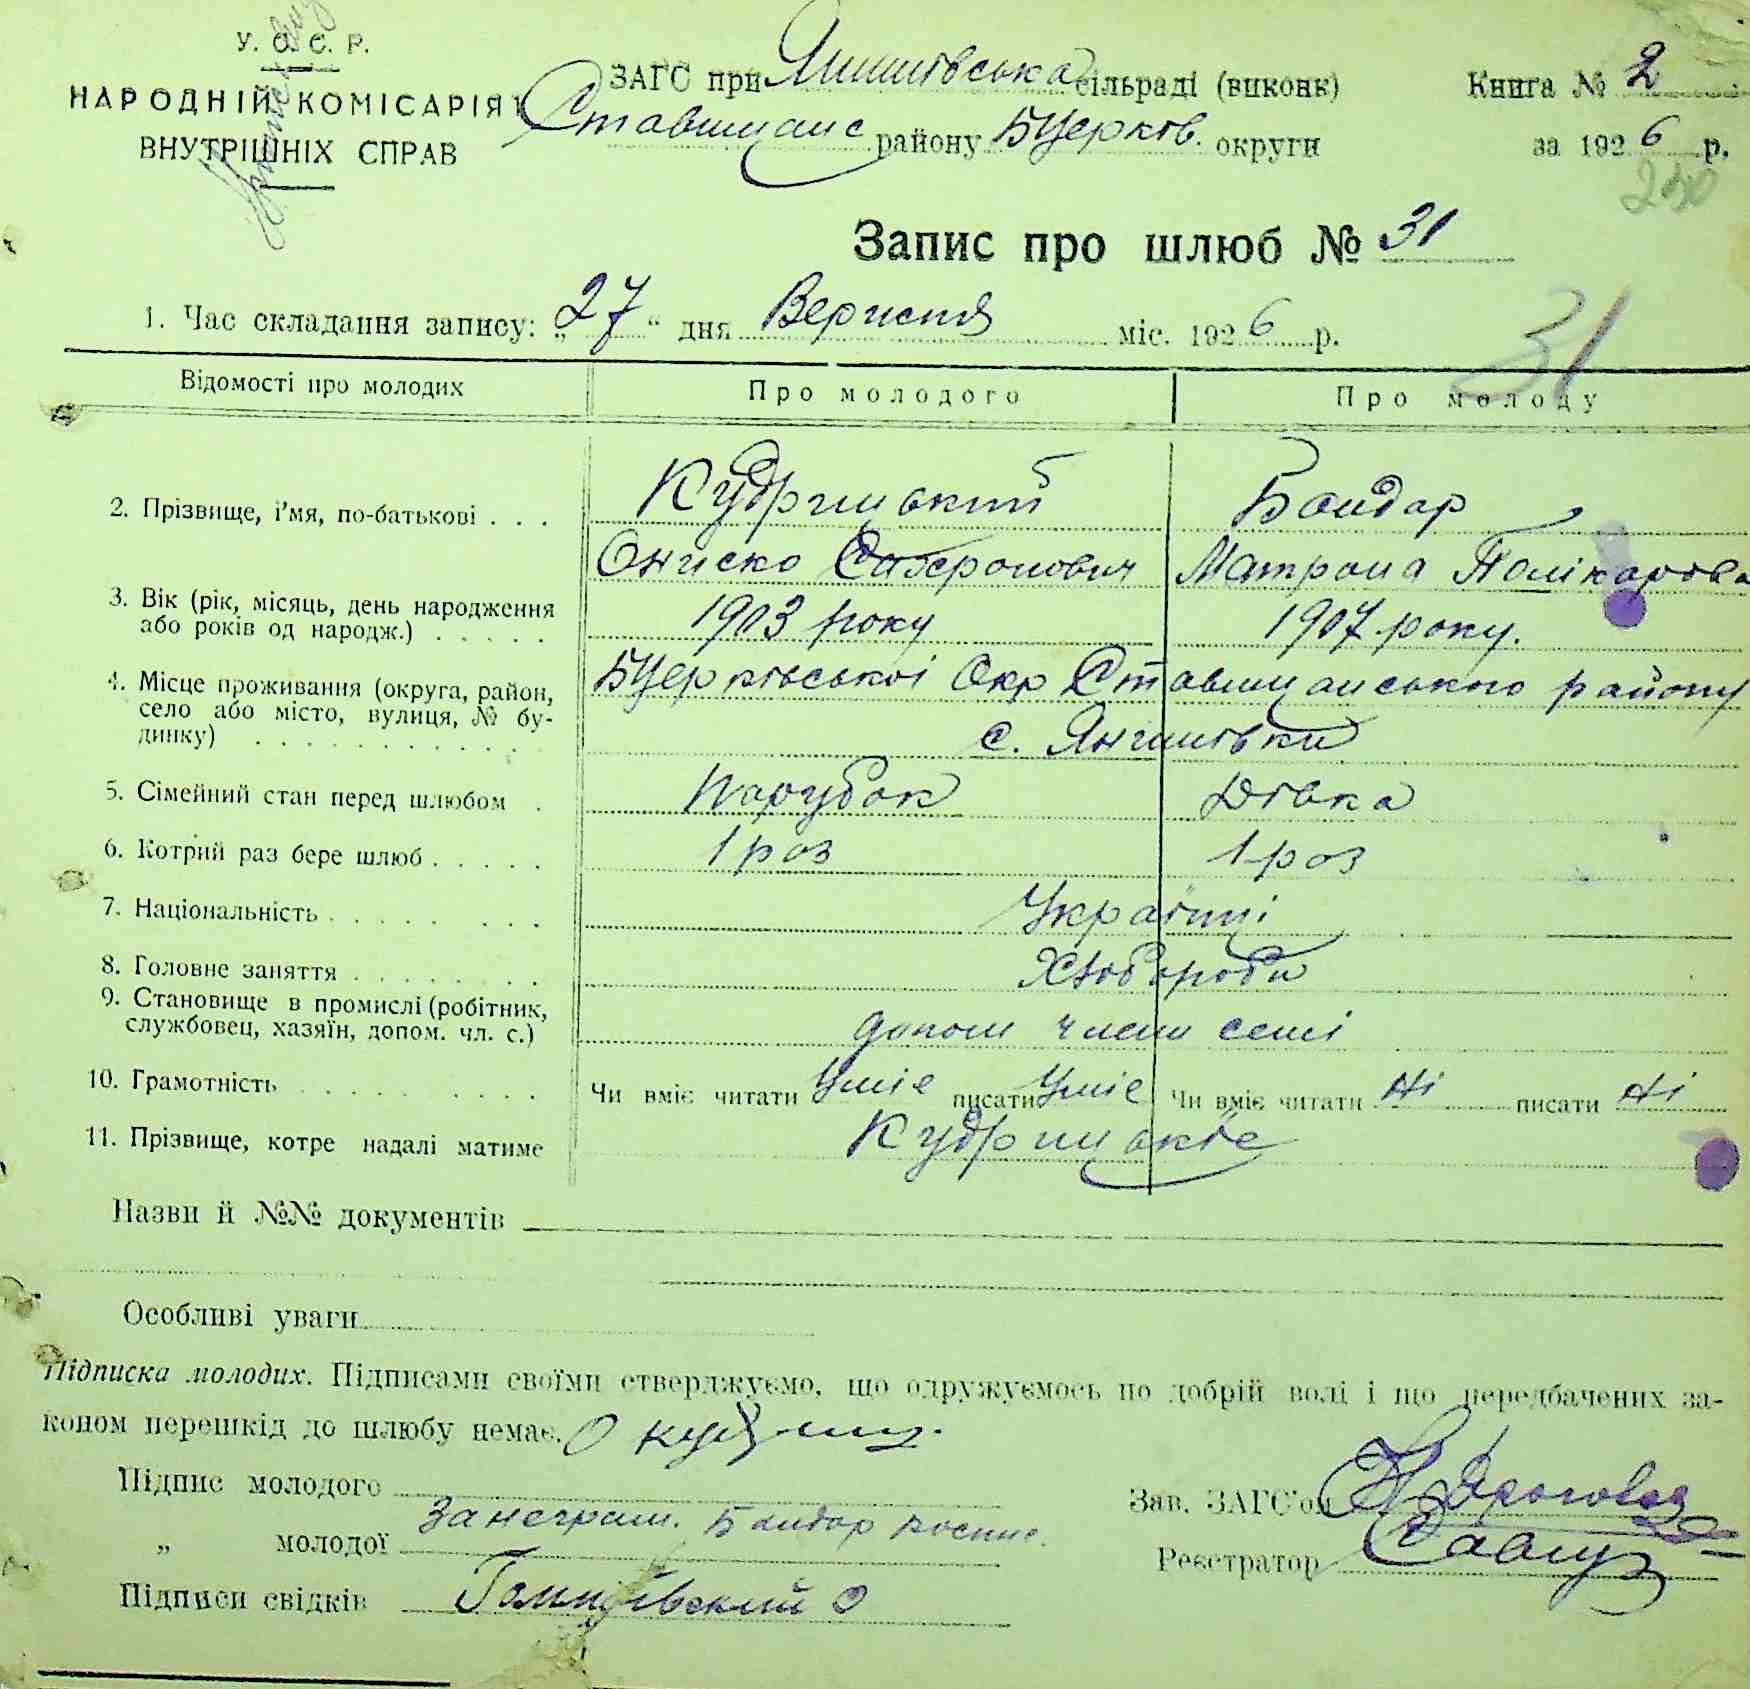 У. С. С. Р.
НАРОДНІЙ КОМІСАРІЯТ
ВНУТРІШНІХ СПРАВ
ЗАГС при Янишівська сільраді (виконк)
Ставищанс району БЦерків. округи
Книга № 2
за 1926 р.
Запис про шлюб № 31
1. Час складання запису: „27“ дня Вересня міс. 1926 р.
31
Відомості про молодих Про молодого Про молоду
2. Прізвище, і'мя, по-батькові . . . Кудрицький Бондар
Ониско Сахронович Матрона Полікарпова
3. Вік (рік, місяць, день народження
або років од народж.) . . . . . 1903 року 1907 року.
4. Місце проживання (округа, район,
село або місто, вулиця, № бу-
динку) . . . . . . . . . . . . БЦерківської Окр Ставищанського району
с. Янишівки
5. Сімейний стан перед шлюбом . парубок дівка
6. Котрий раз бере шлюб . . . . . 1 раз 1 раз
7. Національність . . . . . . . Українці
8. Головне заняття . . . . . . . . Хлібороби
9. Становище в промислі (робітник,
службовец, хазяїн, допом. чл. с.) допом члени семі
10. Грамотність . . . . . . . . . Чи вміє читати Уміє писати Уміє Чи вміє читати Ні писати Ні
11. Прізвище, котре надалі матиме Кудрицькіє
Назви й №№ документів
Особливі уваги
Підписка молодих. Підписами своїми стверджуємо, що одружуємось по добрій волі і що передбачених за-
коном перешкід до шлюбу немає. О кудриц.
Підпис молодого
„ молодої За неграм. Бондар
Підписи свідків
Зав. ЗАГС'ом
Реєстратор